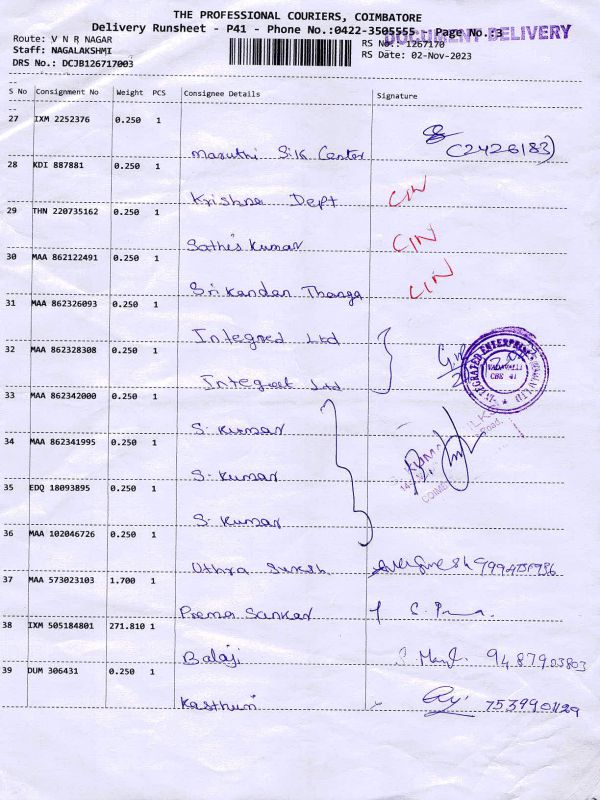 THE PROFESSIONAL COURIERS, COIMBATORE
Delivery Runsheet - P41 - Phone No.:0422-3505555 Page No.:3
DOCUMENT DELIVERY
Route: V N R NAGAR
RS No.: 1267170
Staff: NAGALAKSHMI
RS Date: 02-Nov-2023
DRS No.: DCJB126717003
S No Consignment No Weight PCS Consignee Details Signature
27 IXM 2252376 0.250 1
Maruthi Silk Center (2426183)
28 KDI 887881 0.250 1
Krishna Dept CIN
29 THN 220735162 0.250 1
Sathis Kumar CIN
30 MAA 862122491 0.250 1
Srikandan Thanga CIN
31 MAA 862326093 0.250 1
Integred Ltd
32 MAA 862328308 0.250 1
Integrest Ltd
INTEGRATED ENTERPRISES
VADAVALLI
CBE 41
33 MAA 862342000 0.250 1
S. Kumar
34 MAA 862341995 0.250 1
S. Kumar
35 EDQ 18093895 0.250 1
S. Kumar
36 MAA 102046726 0.250 1
Uthra
37 MAA 573023103 1.700 1
Prema Sankar
38 IXM 505184801 271.810 1
Balaji 9487903803
39 DUM 306431 0.250 1
Kasthuri 7539901129